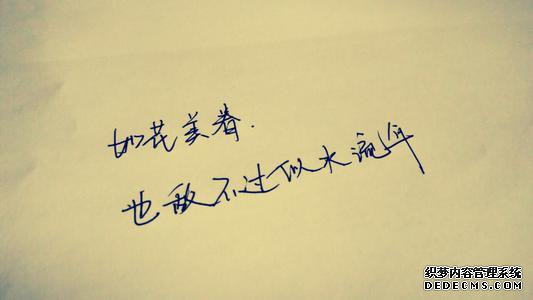 如花美眷.
也敌不过似水流年
织梦内容管理系统
DEDECMS.COM